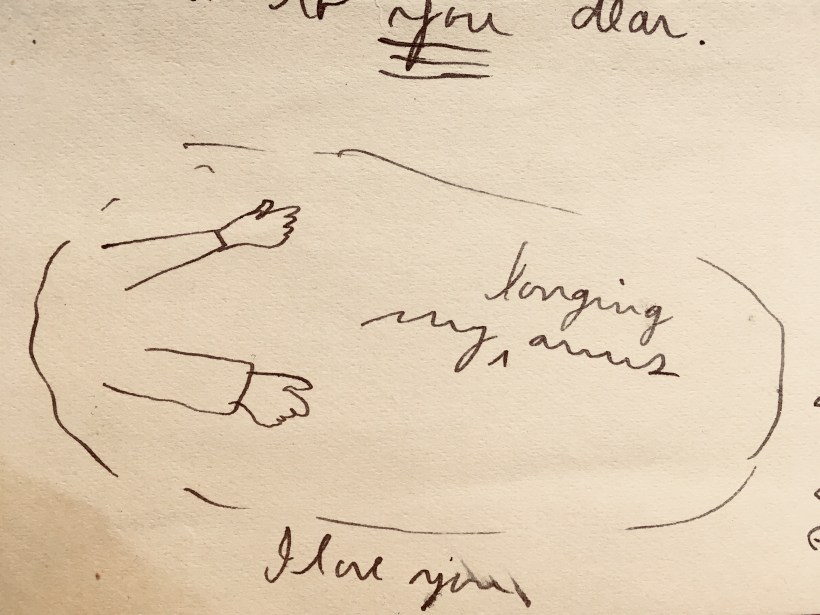 to you dear.
my longing arms
I love you